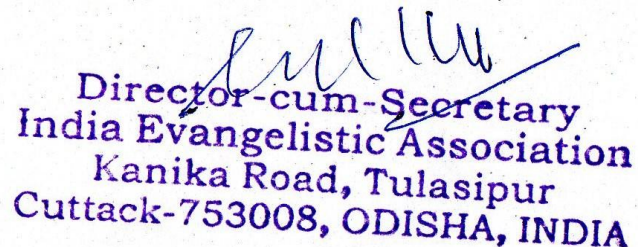 Director-cum-Secretary
India Evangelistic Association
Kanika Road, Tulasipur
Cuttack-753008, ODISHA, INDIA